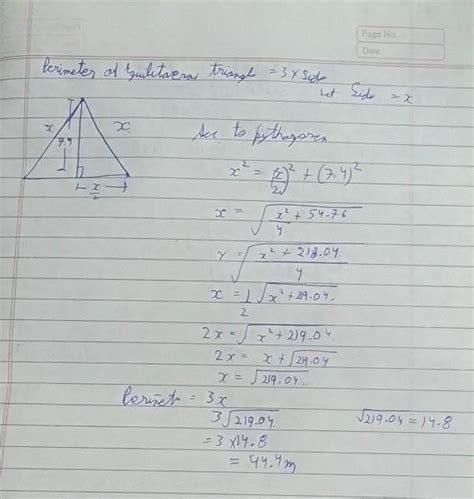 Page No.
Date
Perimeter of Equilateral triangl = 3 x Side
Let Side = x
x
7.4
x
x/2
Acc. to pythagoren
x² = (x/2)² + (7.4)²
x = √(x² + 54.76 / 4)
x = √(x² + 218.04 / 4)
x = 1/2 √(x² + 219.04)
2x = √(x² + 219.04)
2x = x + √219.04
x = √219.04
Perimet = 3x
3√219.04
√219.04 = 14.8
= 3 x 14.8
= 44.4 m